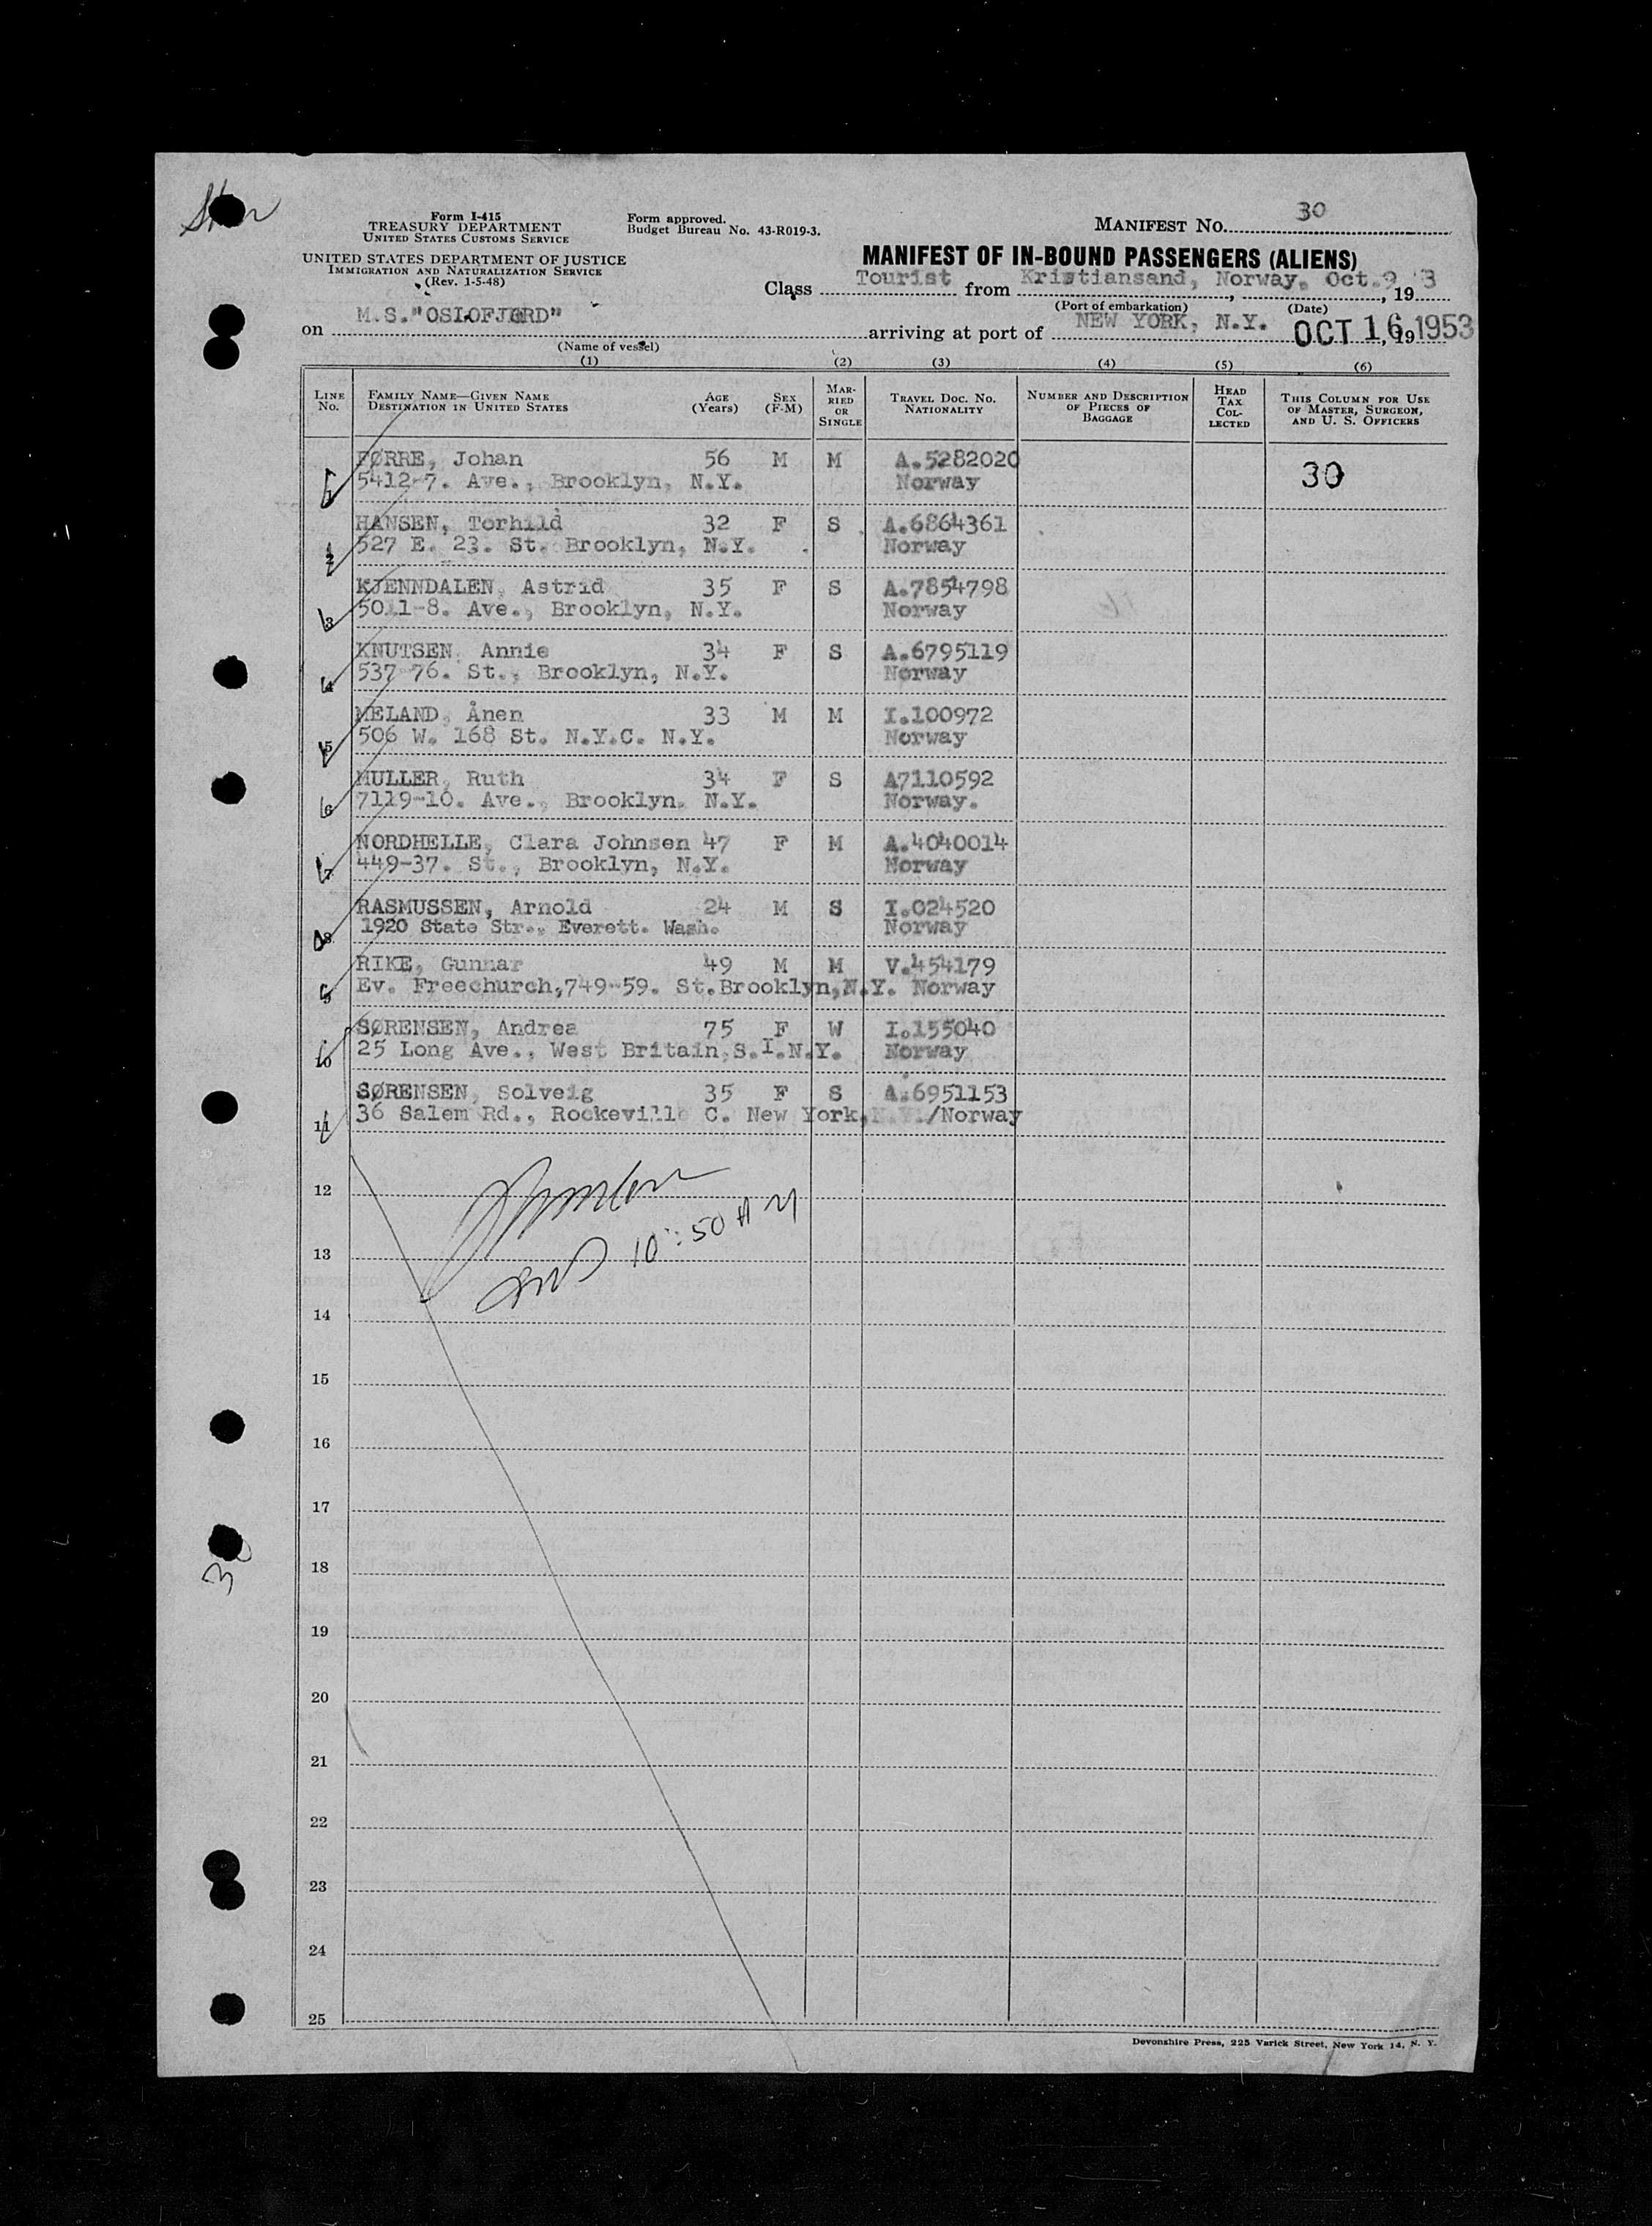 Form I-415
TREASURY DEPARTMENT
UNITED STATES CUSTOMS SERVICE
UNITED STATES DEPARTMENT OF JUSTICE
IMMIGRATION AND NATURALIZATION SERVICE
(Rev. 1-5-48)
Form approved.
Budget Bureau No. 43-R019-3.
MANIFEST No. 30
MANIFEST OF IN-BOUND PASSENGERS (ALIENS)
Class Tourist from Kristiansand, Norway. Oct. 9, 19 3
(Port of embarkation) (Date)
on M.S."OSLOFJORD" arriving at port of NEW YORK, N.Y. OCT 16, 19 1953
(Name of vessel)
(1) (2) (3) (4) (5) (6)
LINE No. FAMILY NAME—GIVEN NAME DESTINATION IN UNITED STATES AGE (Years) SEX (F-M) MARRIED OR SINGLE TRAVEL DOC. NO. NATIONALITY NUMBER AND DESCRIPTION OF PIECES OF BAGGAGE HEAD TAX COLLECTED THIS COLUMN FOR USE OF MASTER, SURGEON, AND U. S. OFFICERS
1 FØRRE, Johan 56 M M A.5282020 30
5412-7. Ave., Brooklyn, N.Y. Norway
2 HANSEN, Torhild 32 F S A.6864361
527 E. 23. St. Brooklyn, N.Y. Norway
3 KJENNDALEN, Astrid 35 F S A.7854798
5011-8. Ave., Brooklyn, N.Y. Norway
4 KNUTSEN, Annie 34 F S A.6795119
537-76. St., Brooklyn, N.Y. Norway
5 MELAND, Ånen 33 M M I.100972
506 W. 168 St. N.Y.C. N.Y. Norway
6 MULLER, Ruth 34 F S A7110592
7119-10. Ave., Brooklyn, N.Y. Norway.
7 NORDHELLE, Clara Johnsen 47 F M A.4040014
449-37. St., Brooklyn, N.Y. Norway
8 RASMUSSEN, Arnold 24 M S I.024520
1920 State Str., Everett. Wash. Norway
9 RIKE, Gunnar 49 M M V.454179
Ev. Freechurch,749-59. St.Brooklyn,N.Y. Norway
10 SØRENSEN, Andrea 75 F W I.155040
25 Long Ave., West Britain,S.I.N.Y. Norway
11 SØRENSEN, Solveig 35 F S A.6951153
36 Salem Rd., Rockeville C. New York,N.Y./Norway
12
10:50 AM
13
14
15
16
17
18
19
20
21
22
23
24
25
Devonshire Press, 225 Varick Street, New York 14, N. Y.